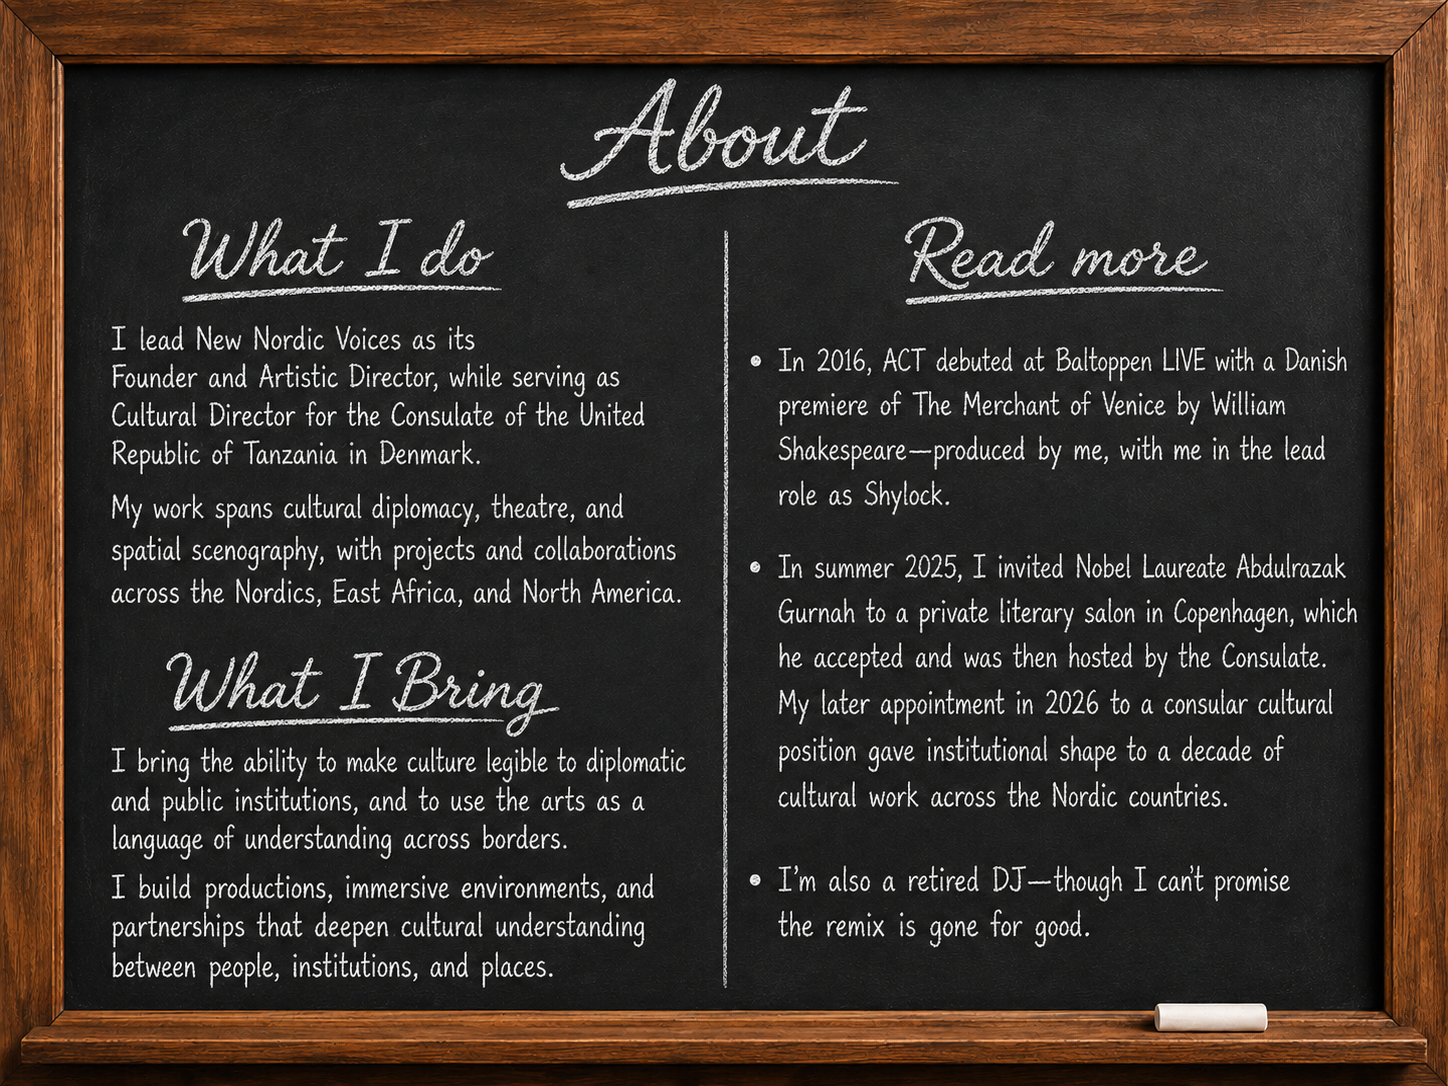 About
What I do
I lead New Nordic Voices as its
Founder and Artistic Director, while serving as
Cultural Director for the Consulate of the United
Republic of Tanzania in Denmark.
My work spans cultural diplomacy, theatre, and
spatial scenography, with projects and collaborations
across the Nordics, East Africa, and North America.
What I Bring
I bring the ability to make culture legible to diplomatic
and public institutions, and to use the arts as a
language of understanding across borders.
I build productions, immersive environments, and
partnerships that deepen cultural understanding
between people, institutions, and places.
Read more
• In 2016, ACT debuted at Baltoppen LIVE with a Danish
premiere of The Merchant of Venice by William
Shakespeare—produced by me, with me in the lead
role as Shylock.
• In summer 2025, I invited Nobel Laureate Abdulrazak
Gurnah to a private literary salon in Copenhagen, which
he accepted and was then hosted by the Consulate.
My later appointment in 2026 to a consular cultural
position gave institutional shape to a decade of
cultural work across the Nordic countries.
• I'm also a retired DJ—though I can't promise
the remix is gone for good.